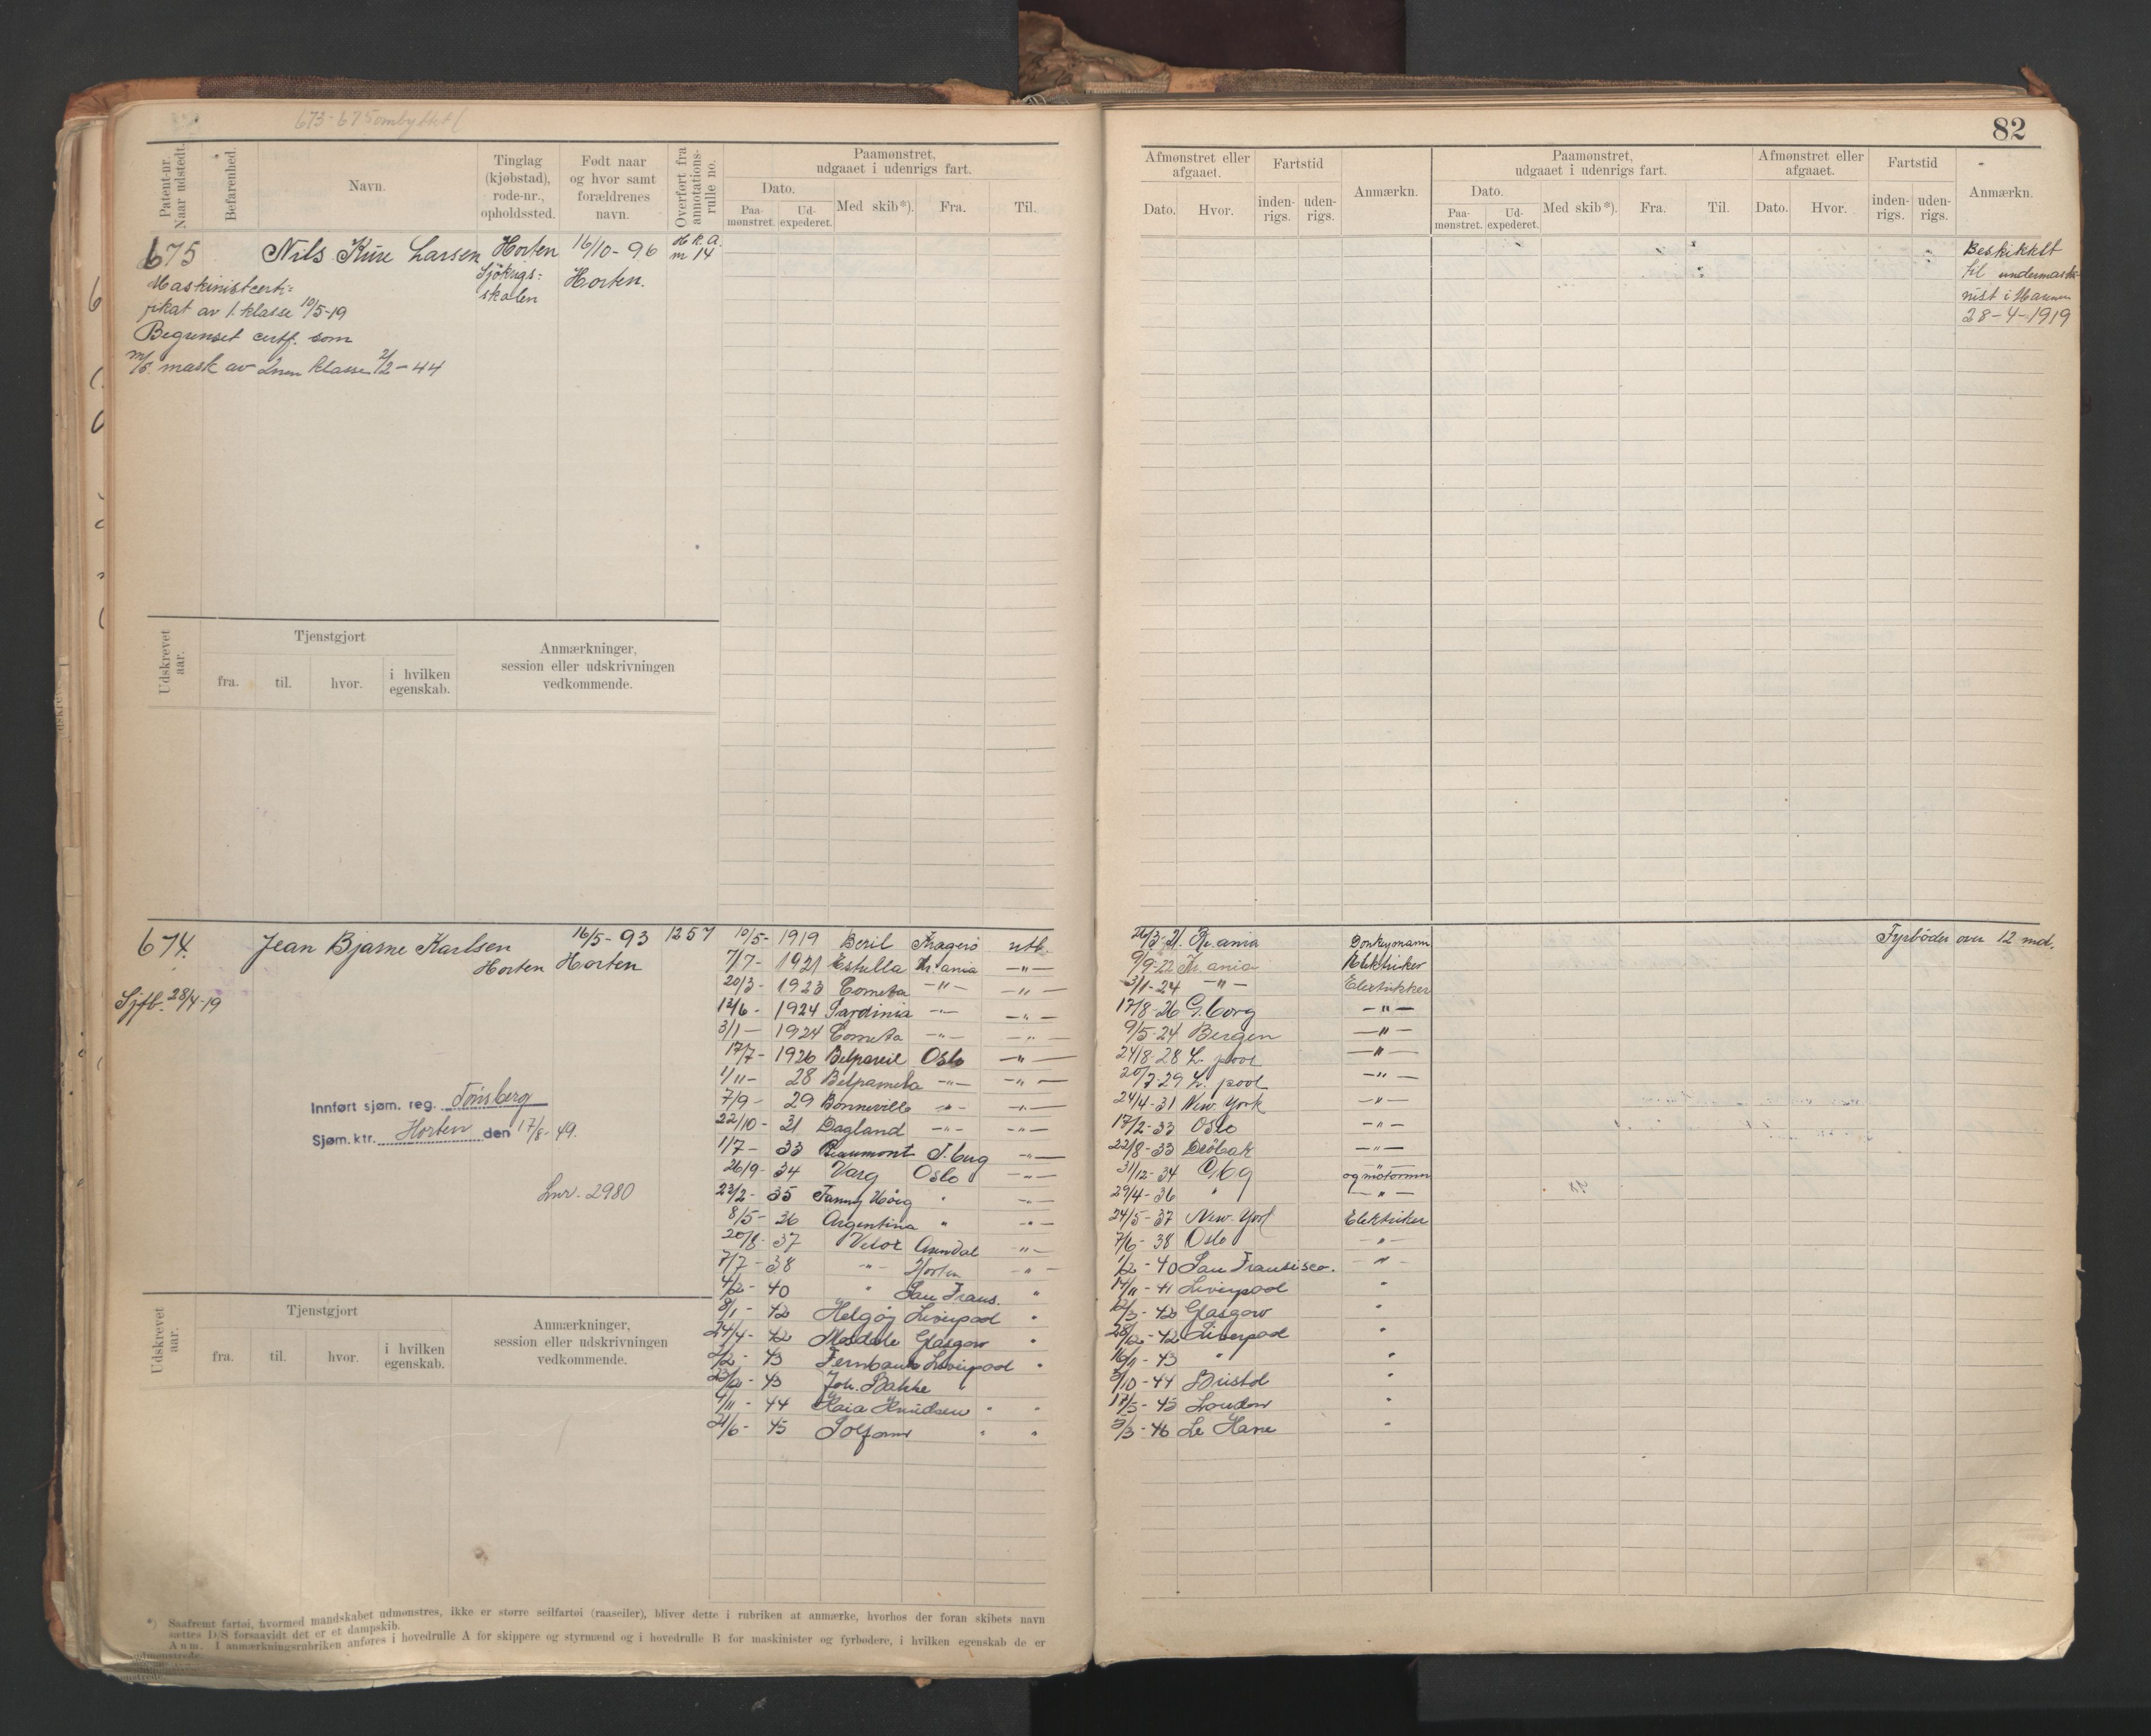 673-675 ombyttet
82
Patent-nr. Naar udstedt.
Befarenhed.
Navn.
Tinglag (kjøbstad), rode-nr., opholdssted.
Født naar og hvor samt forældrenes navn.
Overført fra annotations-rulle no.
Paamønstret, udgaaet i udenrigs fart.
Dato.
Paa-mønstret.
Ud-expederet.
Med skib*).
Fra.
Til.
Afmønstret eller afgaaet.
Dato.
Hvor.
Fartstid
inden-rigs.
uden-rigs.
Anmærkn.
Paamønstret, udgaaet i udenrigs fart.
Dato.
Paa-mønstret.
Ud-expederet.
Med skib*).
Fra.
Til.
Afmønstret eller afgaaet.
Dato.
Hvor.
Fartstid
inden-rigs.
uden-rigs.
Anmærkn.
675 Nils Küre Larsen Horten 16/10-96 H.R.A.
Sjökrigs= Horten. m 14
skolen
Maskinistcerti=
fikat av 1. klasse 10/5-19
Begrenset certf. som
m/s. mask av 2nen klasse 2/2-44
Beskikket
til undermaski=
nist i Marinen
28-4-1919
Udskrevet aar.
Tjenstgjort
fra.
til.
hvor.
i hvilken egenskab.
Anmærkninger, session eller udskrivningen vedkommende.
674. Jean Bjarne Karlsen 16/5-93 1257
Horten Horten
Sjfb. 28/4-19
Innført sjøm. reg. Tönsberg
Sjøm.ktr. Horten den 17/8-49.
Lnr. 2980
10/5- 1919 Beril Kragerö utl. 26/3-21. Kr.ania Donkeymann Fyrböder over 12 md.
7/7- 1921 Estrella Kr.ania -"- 9/9-22 Kr.ania Elektriker
20/3- 1923 Cometa -"- -"- 3/1-24 -"- Elektrikker
12/6- 1924 Sardinia -"- -"- 17/8-26 G.borg -"-
3/1- 1924 Cometa -"- -"- 9/5-24 Bergen -"-
17/7- 1926 Belpareil Oslo -"- 24/8-28 L.pool -"-
1/11- 28 Belpamela -"- -"- 20/7-29 L.pool -"-
7/9- 29 Bonneville -"- -"- 24/4-31 New York -"-
22/10- 31 Dagland -"- -"- 17/2-33 Oslo -"-
1/7- 33 Beaumont T.bug -"- 22/8-33 Dröbak -"-
26/9- 34 Varg Oslo -"- 31/12-34 Gbg -"- og motormn
23/2- 35 Fanny Höeg " -"- 29/4-36 " -"-
8/5- 36 Argentina " -"- 24/5-37 New York Elektriker
20/8- 37 Velox Arendal -"- 7/6-38 Oslo -"-
7/7- 38 -"- Horten -"- 1/2-40 San Fransisco. -"-
4/2- 40 " San Frans. " 14/11-41 Liverpool "
8/1- 42 Helgöy Liverpool " 12/3-42 Glasgow "
24/4- 42 Glasgow " 28/12-42 Liverpool "
2/2- 43 Fernbank Liverpool " 16/11-43 " "
43 Joh. Bakke 3/10-44 Bristol "
4/11- 44 Kaia Knudsen " " 17/5-45 London "
21/6- 45 Solfonn " " 3/3-46 Le Havre "
Udskrevet aar.
Tjenstgjort
fra.
til.
hvor.
i hvilken egenskab.
Anmærkninger, session eller udskrivningen vedkommende.
*) Saafremt fartøi, hvormed mandskabet udmønstres, ikke er større seilfartøi (raaseiler), bliver dette i rubriken at anmærke, hvorhos der foran skibets navn
sættes D/S forsaavidt det er et dampskib.
Anm. I anmærkningsrubriken anføres i hovedrulle A for skippere og styrmænd og i hovedrulle B for maskinister og fyrbødere, i hvilken egenskab de er
udmønstrede.